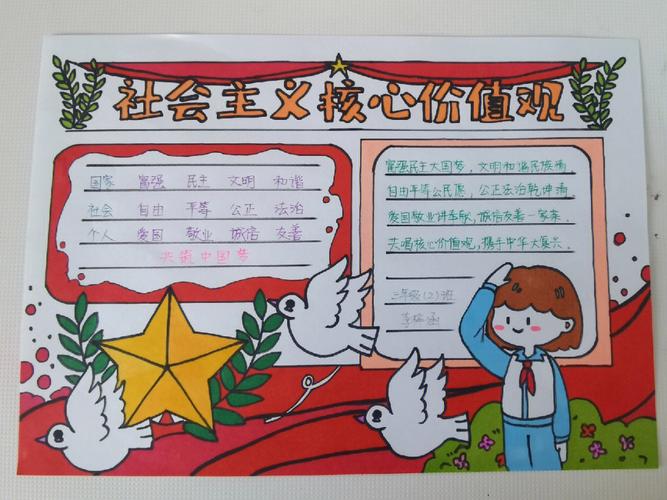 社会主义核心价值观
国家 富强 民主 文明 和谐
社会 自由 平等 公正 法治
个人 爱国 敬业 诚信 友善
共筑中国梦
富强民主大国梦，文明和谐民族涌，
自由平等公民愿，公正法治乾坤涌，
爱国敬业讲奉献，诚信友善一家亲，
共唱核心价值观，携手中华大复兴。
二年级（2）班
李 涵